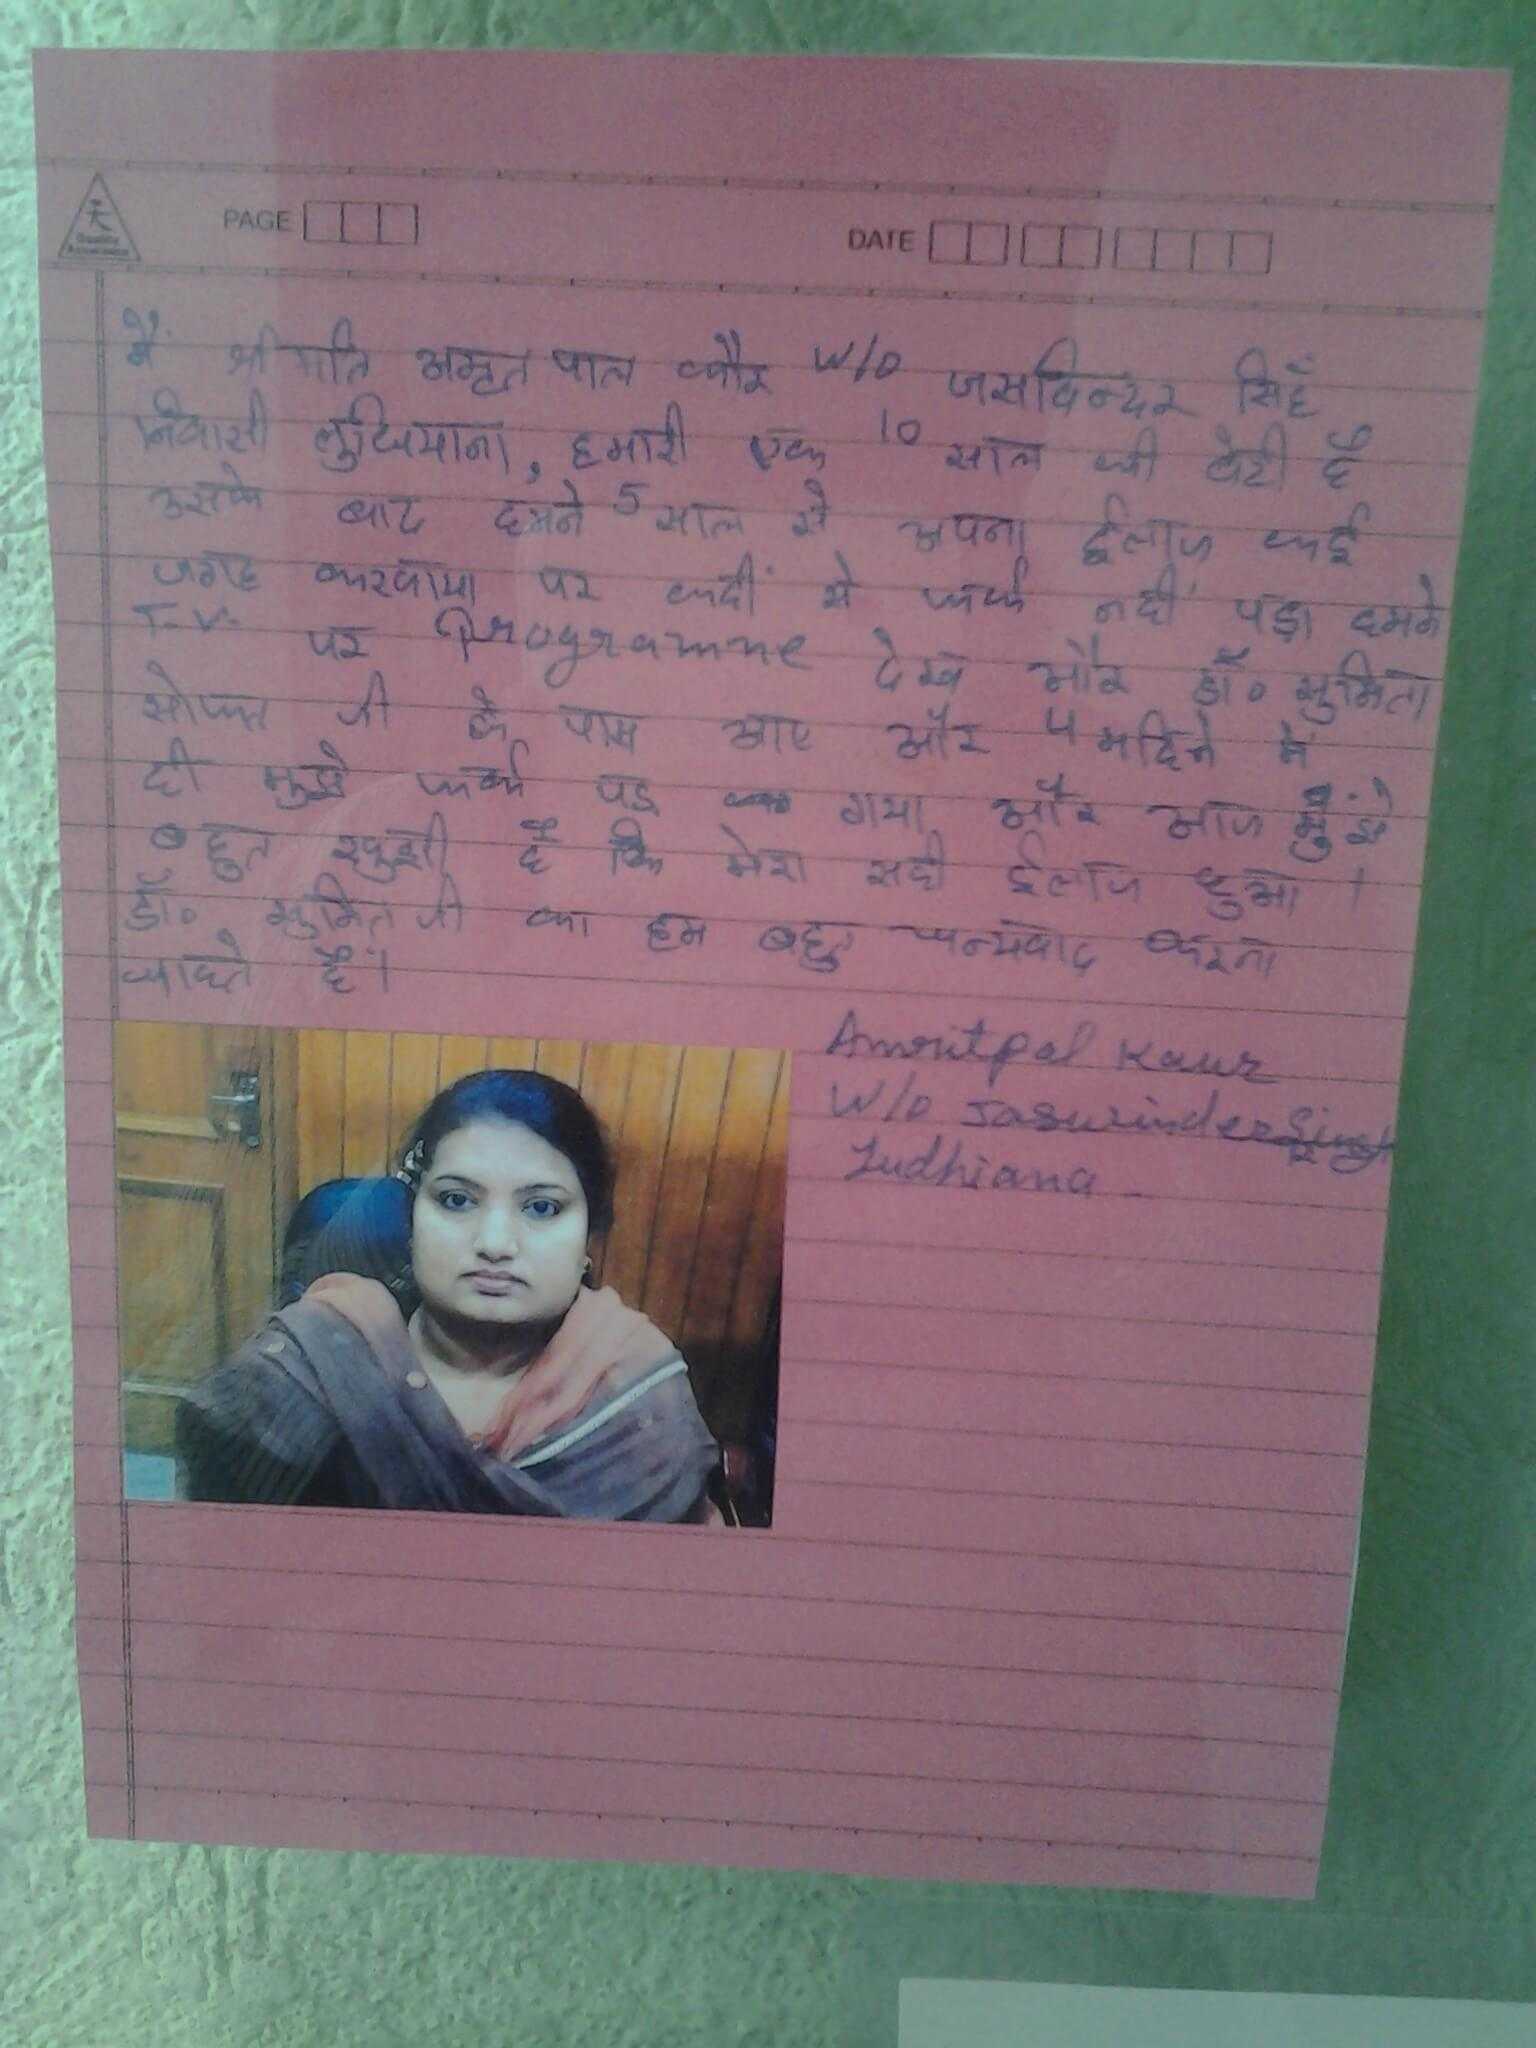 Quality
PAGE
DATE
मैं श्रीमति अमृत पाल कौर W/O जसविन्दर सिहँ
निवासी लुधियाना, हमारी एक 10 साल की बेटी है
उसके बाद हमने 5 साल से अपना ईलाज कई
जगह करवाया पर कहीं से फर्क नहीं पड़ा हमने
T.V. पर Programme देख और डॉ० सुमिता
सोफत जी के पास आए और 4 महिने में
ही मुझे फर्क पड़ गया और आज मुझे
बहुत खुशी है कि मेरा सही ईलाज हुआ।
डॉ० सुमित जी का हम बहुत धन्यवाद करना
चाहते हैं।
Amritpal Kaur
W/O Jaswinder Singh
Ludhiana